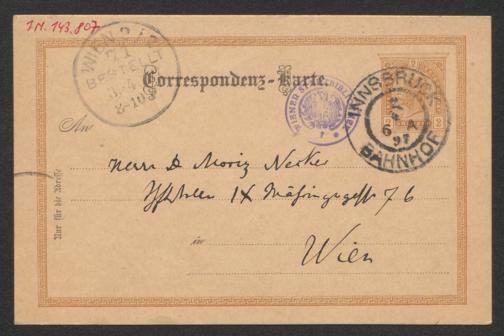 I.N. 143.807
Correspondenz-Karte.
WIEN
BESTELLT
INNSBRUCK
BAHNHOF
6 4
97
WIENER STADTBIBLIOTHEK
2 2
An
Herrn Dr Moriz Necker
IX 76
in Wien
Nur für die Adresse